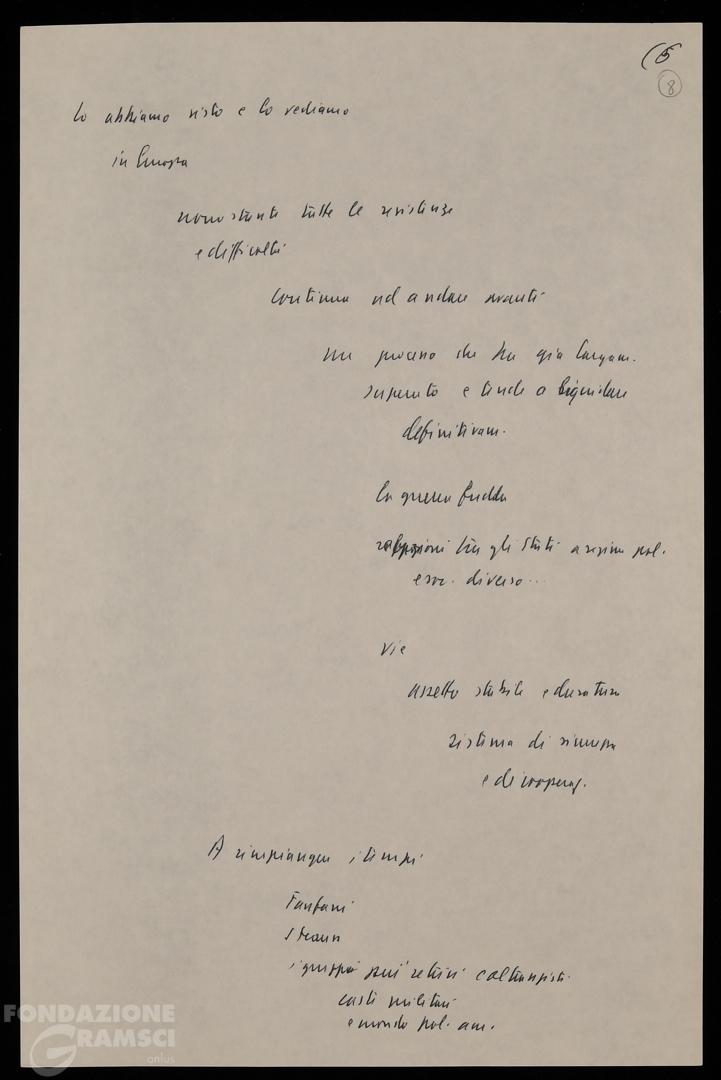 (5
8
Lo abbiamo visto e lo vediamo
in Europa
nonostante tutte le resistenze
e difficoltà
continua ad andare avanti
un processo che ha già largam.
superato e tende a liquidare
definitivam.
la guerra fredda
tra gli Stati a regime pol.
e soc. diverso...
Vie
assetto stabile e duraturo
sistema di sicurezza
e di cooperaz.
A rimpiangere i tempi
Fanfani
Strauss
i gruppi più retrivi e oltranzisti
casti militari
e mondo pol. am.
FONDAZIONE
GRAMSCI
onlus